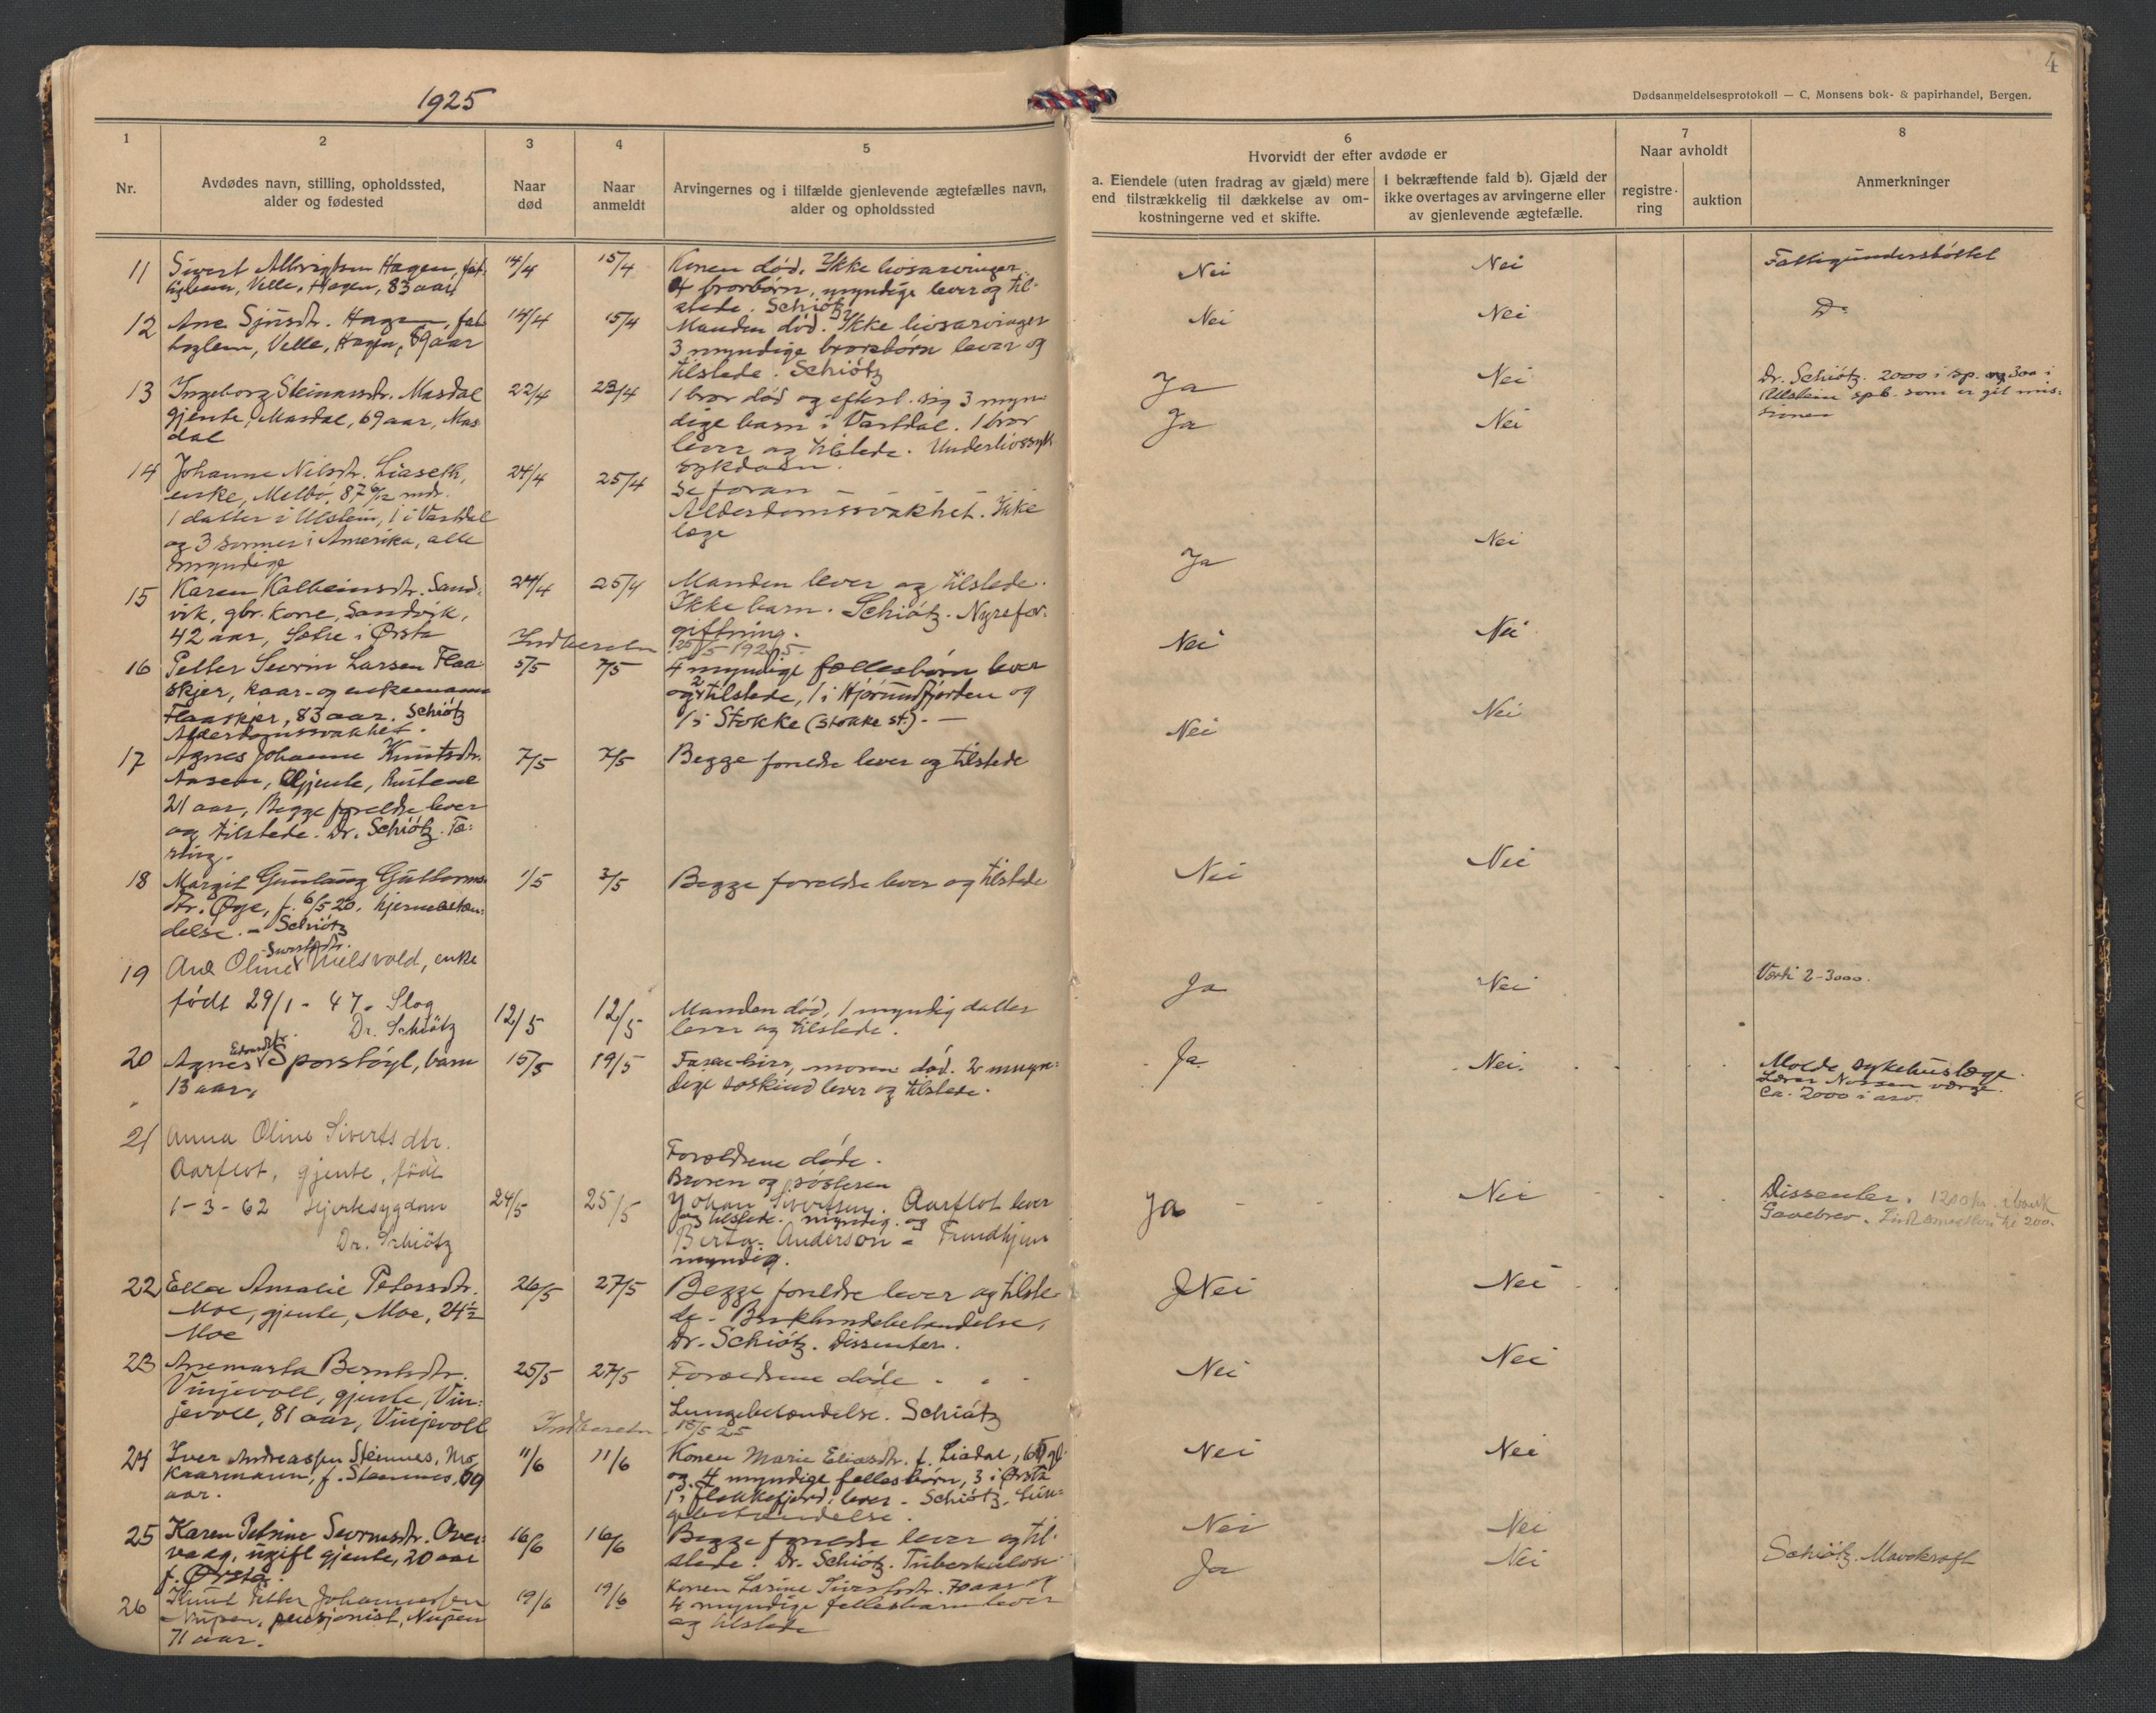 1925
4
Dødsanmeldelsesprotokoll — C. Monsens bok- & papirhandel, Bergen.
1
Nr.
2
Avdødes navn, stilling, opholdssted,
alder og fødested
3
Naar
død
4
Naar
anmeldt
5
Arvingernes og i tilfælde gjenlevende ægtefælles navn,
alder og opholdssted
6
Hvorvidt der efter avdøde er
a. Eiendele (uten fradrag av gjæld) mere
end tilstrækkelig til dækkelse av om-
kostningerne ved et skifte.
I bekræftende fald b). Gjæld der
ikke overtages av arvingerne eller
av gjenlevende ægtefælle.
7
Naar avholdt
registre-
ring
auktion
8
Anmerkninger
11
Sivert Albrigtsen Hagen, fat-
tiglem, Velle, Hagen, 83 aar,
14/4
15/4
Konen død. Ikke livsarvinger
4 brorbørn, myndige lever og til-
stede. Schiötz
Nei
Nei
Fattigunderstöttet
12
Ane Sjursdtr. Hagen, fat
tiglem, Velle, Hagen, 89 aar
14/4
15/4
Manden død. Ikke livsarvinger
3 myndige brorsbørn lever og
tilstede. Schiötz
Nei
Nei
Do
13
Ingeborg Steinarsdtr. Masdal
gjente, Masdal, 69 aar, Mas
dal
22/4
23/4
1 bror død og efterl. sig 3 myn-
dige barn i Vartdal. 1 bror
lever og tilstede. Underlivssyk
sykdom.
Ja
Nei
Dr. Schiötz. 2000 i sp. og 300 i
Ulstein spb. som er git mis-
sionen
14
Johanne Nilsdtr. Liaseth,
enke, Melbö, 87 6/12 mdr.
1 datter i Ulstein, 1 i Vartdal
og 3 sønner i Amerika, alle
myndige
24/4
25/4
Se foran — — —
Alderdomssvakhet. Ikke
læge
Ja
Nei
15
Karen Kolbeinsdtr. Sand-
vik, gbr. kone, Sandvik,
42 aar, Sætre i Ørsta
24/4
25/4
Manden lever og tilstede.
Ikke barn. Schiötz. Nyrefor-
giftning.
Ja
Nei
Indberetn 25/5 1925.
16
Petter Severin Larsen Flaa
skjer, kaar- og enkemann
Flaaskjer, 83 aar. Schiötz
Alderdomssvakhet.
5/5
7/5
4 myndige fællesbørn lever
og 2 tilstede, 1 i Hjørundfjorden og
1 i Stokke (Stokke st.). —
Nei
Nei
17
Agnes Johanne Knutsdtr.
Aasen, gjente, Rustene
21 aar, Begge foreldre lever
og tilstede. Dr. Schiötz. Tæ-
ring.
7/5
7/5
Begge foreldre lever og tilstede
Nei
Nei
18
Margit Gunlaug Guttorms-
dtr. Øye, f. 6/5 20. hjernebeten-
delse. — Schiötz
1/5
3/5
Begge foreldre lever og tilstede
Nei
Nei
19
Sivertsdtr.
Ane Oline Nielsvold, enke
født 29/1 - 47. Slag
Dr. Schiötz
12/5
12/5
Manden død, 1 myndig datter
lever og tilstede.
Ja
Nei
Værdi 2-3000.
20
Edvardsdtr.
Agnes Sporstöyl, barn
13 aar,
15/5
19/5
moren død. 2 myn-
dige søskind lever og tilstede.
Ja.
Nei.
Molde sykehuslæge.
Lærer Nossen værge.
Ca. 2000 i arv.
21
Anna Oline Siverts dtr.
Aarflot, gjente, född
1-3-62 Hjertesygdom
Dr. Schiötz
24/5
25/5
Forældrene døde.
Broren og søsteren
Johan Sivertsen Aarflot lever
og tilstede. myndig. og
Berta Anderson - Trondhjem
myndig.
Ja
Nei
Dissenter. 1200 kr. i bank
Gavebrev.
22
Ella Amalie Petersdtr.
Moe, gjente, Moe, 24 1/2
Moe
26/5
27/5
Begge foreldre lever og tilste-
de. Brukhindebetendelse,
Dr. Schiötz. Dissenter.
Nei
Nei
23
Anemarta Berntsdtr.
Vinjevoll, gjente, Vin-
jevoll, 81 aar, Vinjevoll
25/5
27/5
Forældrene døde - - -
Lungebetændelse. Schiötz
Nei
Nei
Indberetn 15/5 25
24
Iver Andreassen Steinnes, Mo,
Kaarmann, f. Steinnes, 69
aar.
11/6
11/6
Konen Marie Eliasdtr. f. Liadal,
og 4 myndige fellesbørn, 3 i Ørsta
1 i Flekkefjord, lever - Schiötz. Lun-
gebetændelse.
Nei
Nei
25
Karen Petrine Severinsdtr. Over-
vaag, ugift gjente, 20 aar
f. Ørsta.
16/6
16/6
Begge foreldre lever og til-
stede. Dr. Schiötz. Tuberkulose
Nei
Nei
26
Knut Petter Johannessen
Nupen, pensjonist, Nupen
71 aar.
19/6
19/6
Konen Larine Sivertsdtr. 70 aar og
4 myndige fellesbarn lever
og tilstede
Ja
Nei
Schiötz. Mavekræft